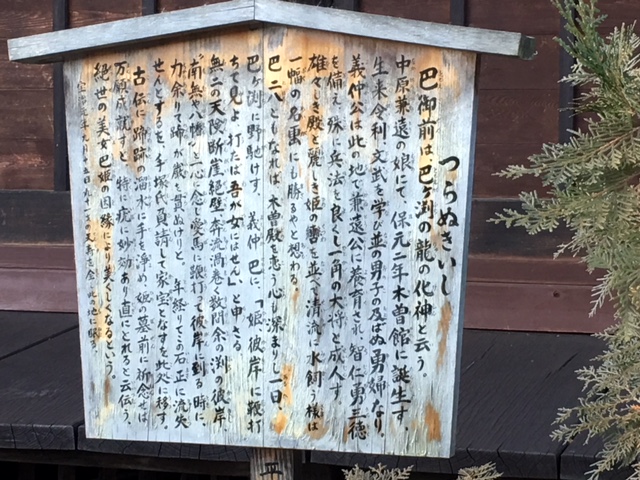 つらぬきいし
巴御前は、巴ヶ渕の龍の化神と云う。
中原兼遠の娘にて、保元二年木曽館に誕生す
生来令利、文武を学び並の男子の及ばぬ勇婦なり。
義仲公は此の地で兼遠公に養育され 智仁勇三徳
を備え 殊に兵法を良くし一角の大将と成人す
雄々しき殿と麗しき姫の轡を並べ清流に水飼う様は
一幅の名画にも勝ると想わる
巴二八ともなれば、木曽殿を恋う心も深まりし一日、
巴ヶ渕に野馳けす、義仲 巴に、「娘彼岸に鞭打
ちて見よ 打たば吾が女にはせん」と申さる
無二の天険断崖絶壁、奔流渦巻く数間余の渕の彼岸
"南無八幡"と心に念じ愛馬に鞭打って彼岸に到る時に、
力余りて蹄が巌を貫ぬけりと、年経りてこの石 正に流失
せんとするを、手塚氏貢請して家宝となすを此処に移す。
古伝に蹄跡の溜水に手を浄め、姫の墓前に祈念せば
万願成就すと、特に疣に妙効あり直にとれると云伝う、
絶世の美女巴姫の因縁により美しくなるという。
此の地に
平